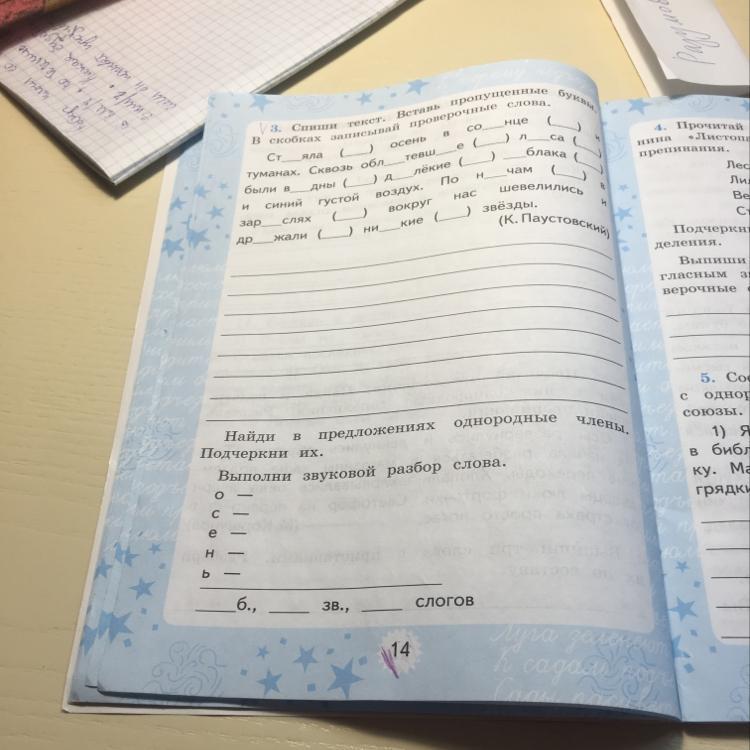 3. Спиши текст. Вставь пропущенные буквы.
В скобках записывай проверочные слова.
Ст__яла (__) осень в со__нце (__) и
туманах. Сквозь обл__тевш__е (__) л__са (__)
были в__дны (__) д__лёкие (__) __блака (__)
и синий густой воздух. По н__чам (__) в
зар__слях (__) вокруг нас шевелились и
др__жали (__) ни__кие (__) звёзды.
(К. Паустовский)
Найди в предложениях однородные члены.
Подчеркни их.
Выполни звуковой разбор слова.
о —
с —
е —
н —
ь —
____б., ____ зв., ____ слогов
14
4. Прочитай
нина «Листопа
препинания.
Лес
Ли
Ве
Ст
Подчеркн
деления.
Выпиши
гласным з
верочные с
5. Сос
с однор
союзы.
1) Я
в библ
ку. Ма
грядки